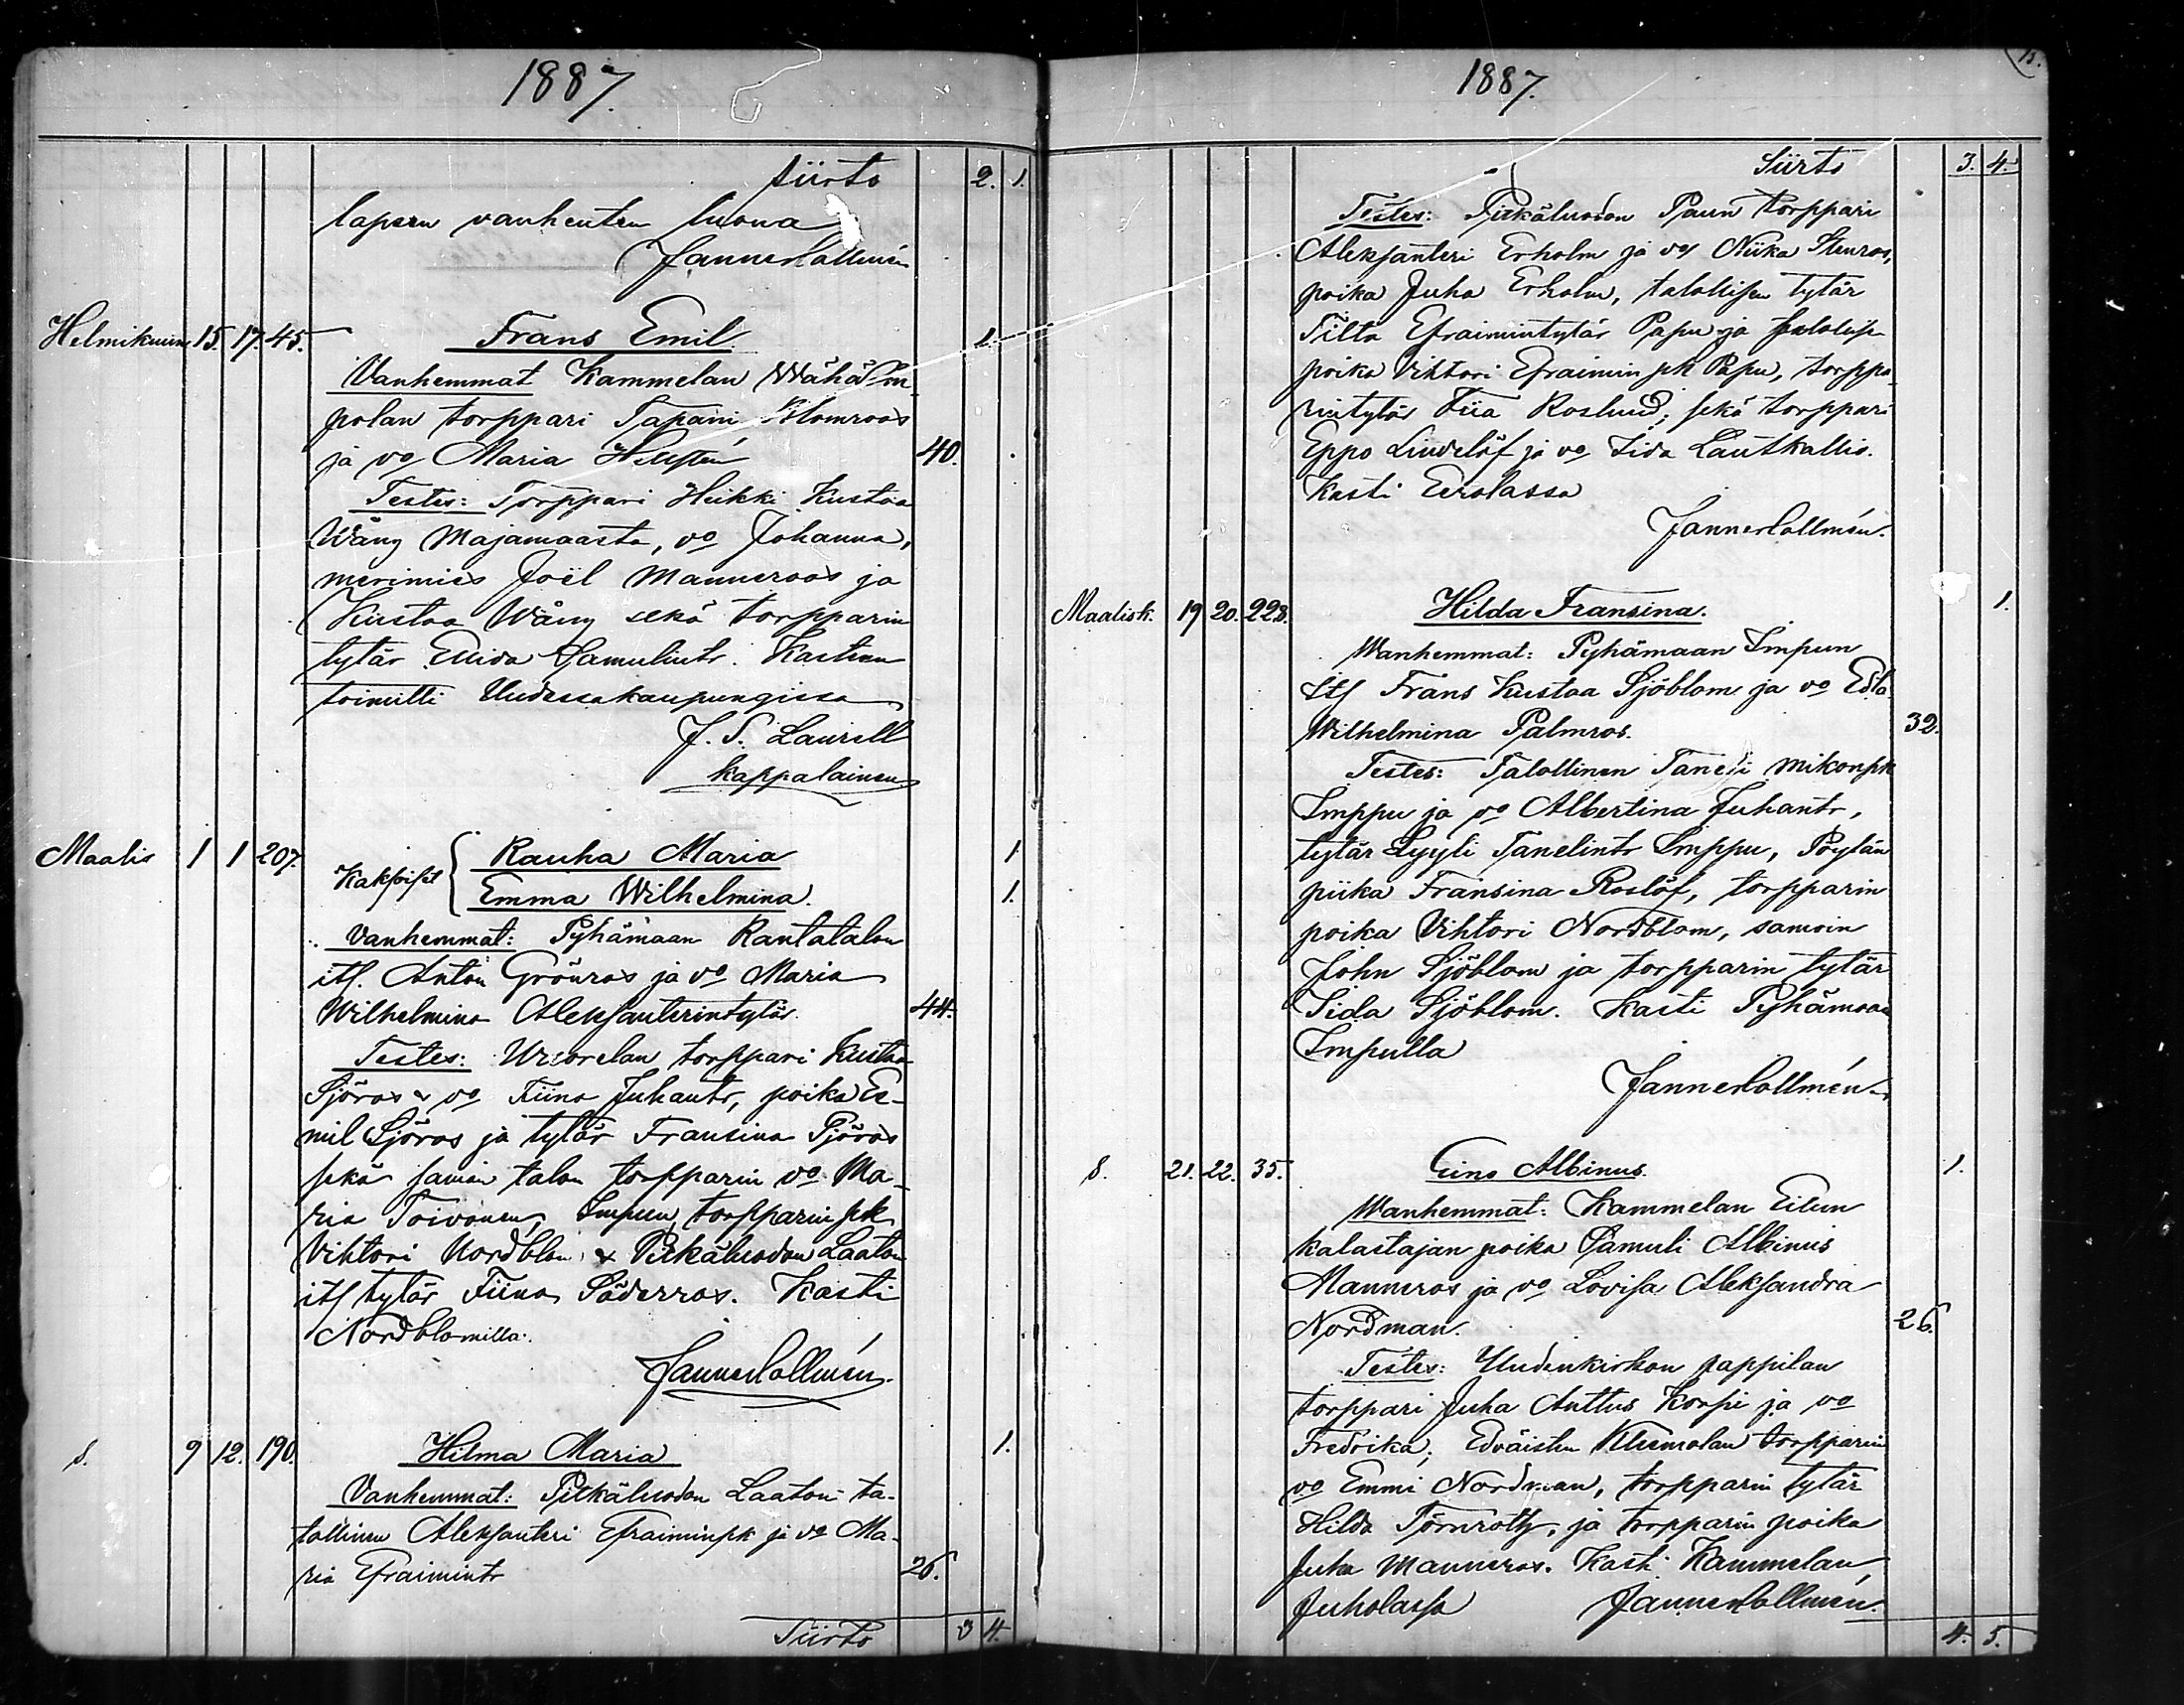 1887.
siirto 2. 1.
lapsen vanhenten luona
Janne Collmén
Helmikuun 15. 17. 45. Frans Emil 1.
Vanhemmat Kammelan Wähä Im
polan torppari Tapani Blomroos
ja vo Maria Hellstén 40.
Testes: Torppari Heikki Kustaa
Wång Majamaasta, vo Johanna,
merimies Joël Manneroos ja
Kustaa Wång sekä torpparin
tytär Elida Samulintr. Kasteen
toimitti Uudessakaupungissa
J. S. Laurell
kappalainen
Maalis 1 1 207. Kaksoiset { Rauha Maria 1
Emma Wilhelmina. 1.
Vanhemmat: Pyhämaan Rantatalon
its. Anton Grönros ja vo Maria
Wilhelmina Aleksanterintytär. 44.
Testes: torppari Kustaa
Sjöros & vo Fiina Juhantr, poika E-
mil Sjöros ja tytär Fransina Sjöros
sekä saman talon torpparin vo Ma-
ria Toivonen, Impun torpparin pk
Vihtori Nordblom & Pitkäluodon Laaton
its tytär Fiina Söderros. Kasti
Nordblomilla.
Janne Collmén.
S. 9 12. 190. Hilma Maria 1.
Vanhemmat: Pitkäluodon Laaton ta-
lollinen Aleksanteri Efraiminpk ja vo Ma-
ria Efraimintr 26.
Siirto 3 4.
1887. 15.
Siirto 3. 4.
Testes: Pitkäluodon Paun torppari
Aleksanteri Erholm ja vo Stenros,
poika Juho Erholm, talollisen tytär
Tilta Efraimintytär Papu ja talolisn
poika Vihtori Efraimin pk Papu, torppa-
rintytär Fiia Roslund; sekä torppari
Eppo Lindelöf ja vo Iida Lautkallio.
Kasti Eerolassa
Janne Collmén.
Maalisk. 19 20. 228. Hilda Fransina. 1.
Wanhemmat: Pyhämaan Impun
its Frans Kustaa Sjöblom ja vo Edla
Wilhelmina Palmros. 32.
Testes: Talollinen Taneli Mikonpk
Imppu ja vo Albertina Juhantr,
tytär Lyyli Tanelintr Imppu, Pöytän
piika Fransina Roslöf, torpparin
poika Vihtori Nordblom, samoin
John Sjöblom ja torpparin tytär
Iida Sjöblom. Kasti Pyhämaan
Impulla
Janne Collmén.
S. 21. 22. 35. Eino Albinus. 1.
Wanhemmat: Kammelan Eilun
kalastajan poika Samuli Albinus
Manneros ja vo Lovisa Aleksandra
Nordman. 26.
Testes: Uudenkirkon pappilan
torppari Juha Anttus Korpi ja vo
Fredrika; Edväisten Kleemolan torpparin
vo Emmi Nordman, torpparin tytär
Hilda Törnroth, ja torpparin poika
Juha Manneros. Kasti Kammelan
Juholassa Janne Collmén.
4. 5.